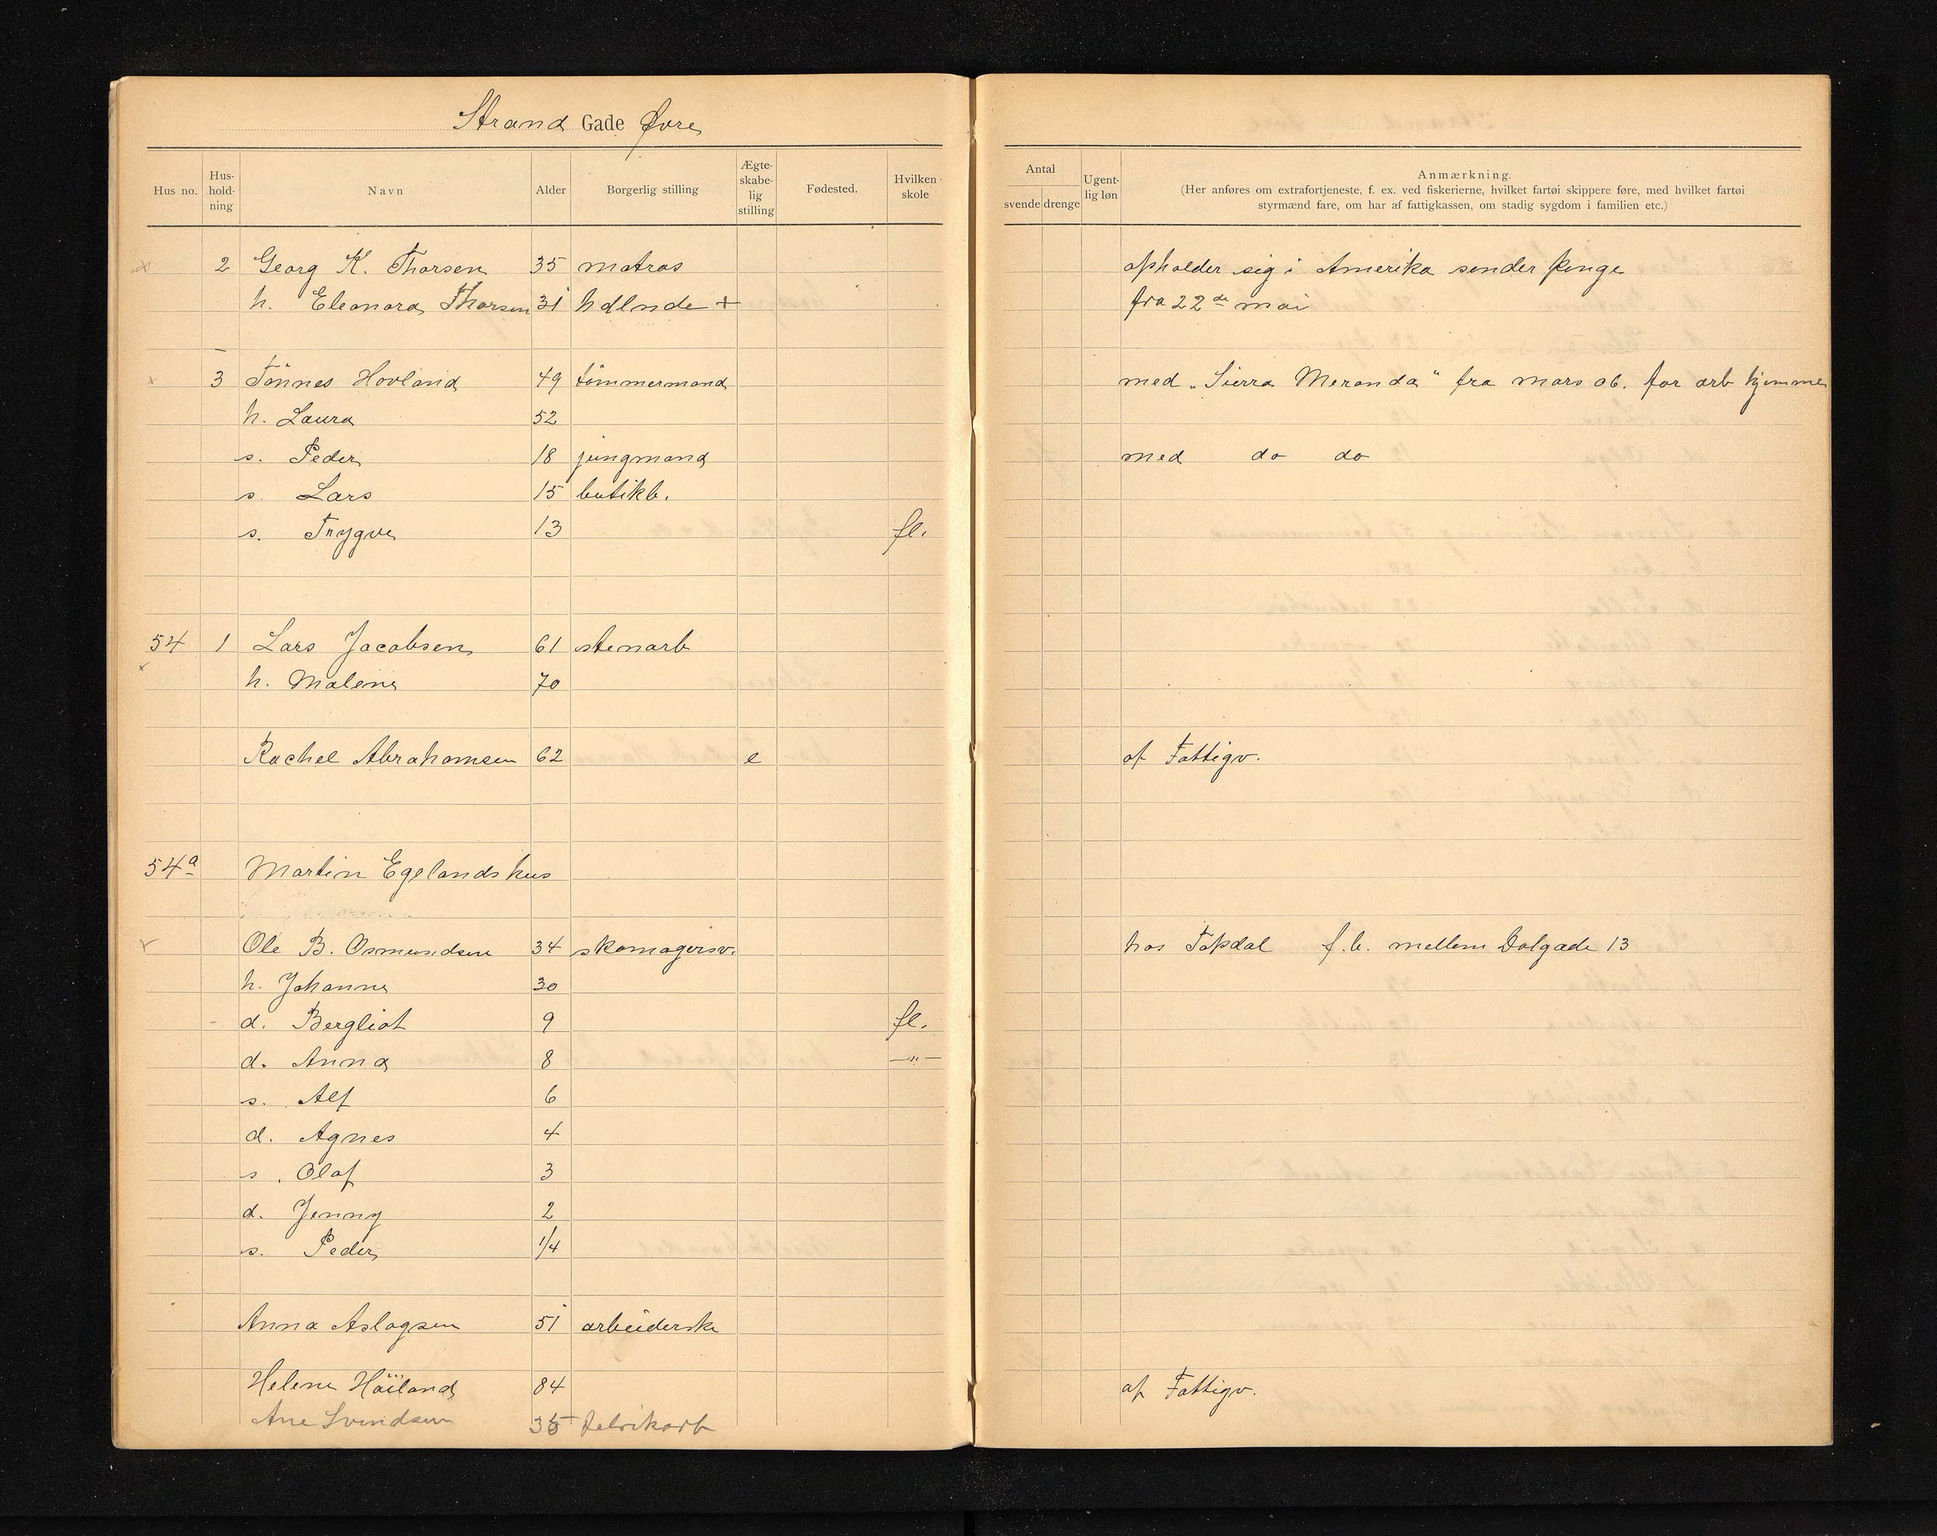 Strand Gade Øvre
Hus no. Hus-hold-ning Navn Alder Borgerlig stilling Ægte-skabe-lig stilling Fødested. Hvilken skole Antal svende drenge Ugent-lig løn Anmærkning.
(Her anføres om extrafortjeneste, f. ex. ved fiskerierne, hvilket fartøi skippere føre, med hvilket fartøi
styrmænd fare, om har af fattigkassen, om stadig sygdom i familien etc.)
2 Georg K. Thorsen 35 matros opholder sig i Amerika sender penge
h. Eleonora Thorsen 31 hdlnde + fra 22de mai
3 Tönnes Hovland 49 tömmermand med „Sierra Meranda" fra mars 06. for arb hjemme
h. Laura 52
s. Peder 18 jungmand med do do
s. Lars 15 butikb.
s. Trygve 13 fl.
54 1 Lars Jacobsen 61 stenarb
h. Malene 70
Rachel Abrahamsen 62 e af Fattigv.
54a Martin Egelands hus
Ole B. Osmundsen 34 skomagersv. hos Topdal f.b. mellem Dalgade 13
h. Johanne 30
d. Bergliot 9 fl.
d. Anna 8 —"—
s. Alf 6
d. Agnes 4
s. Olaf 3
d. Jenny 2
s. Peder 1/4
Anna Aslagsen 51 arbeiderske
Helene Höiland 84 af Fattigv.
Ane Svendsen 35 fabrikarb